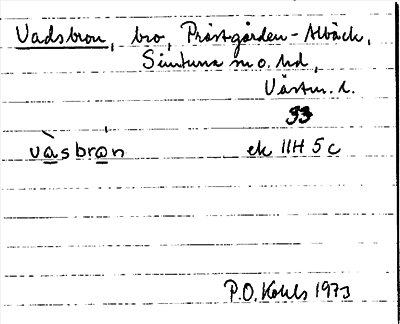 Vadsbron, bro, Prästgården-Albäck,
Simtuna sn o. hd,
Västm. l.
93
và̲sbrå̲n ek 11H 5c
P.O. Kohls 1973